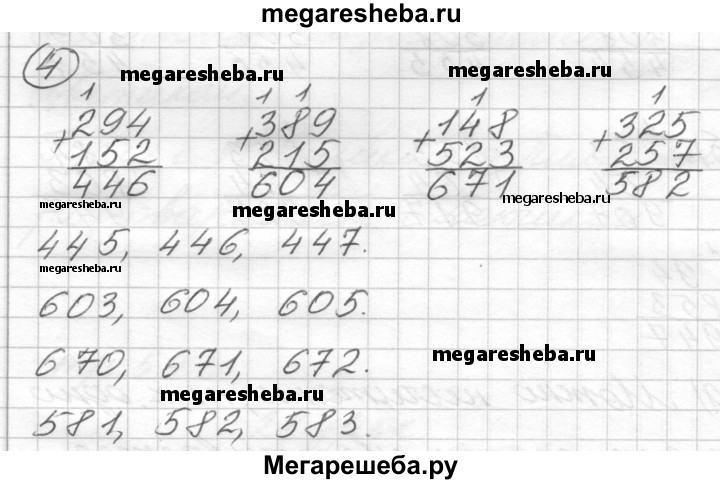 megaresheba.ru
4
megaresheba.ru megaresheba.ru
1 1 1 1 1
+294 +389 +148 +325
152 215 523 257
446 604 671 582
megaresheba.ru megaresheba.ru megaresheba.ru
445, 446, 447.
megaresheba.ru
603, 604, 605.
670, 671, 672.
megaresheba.ru
megaresheba.ru
581, 582, 583.
Мегарешеба.ру